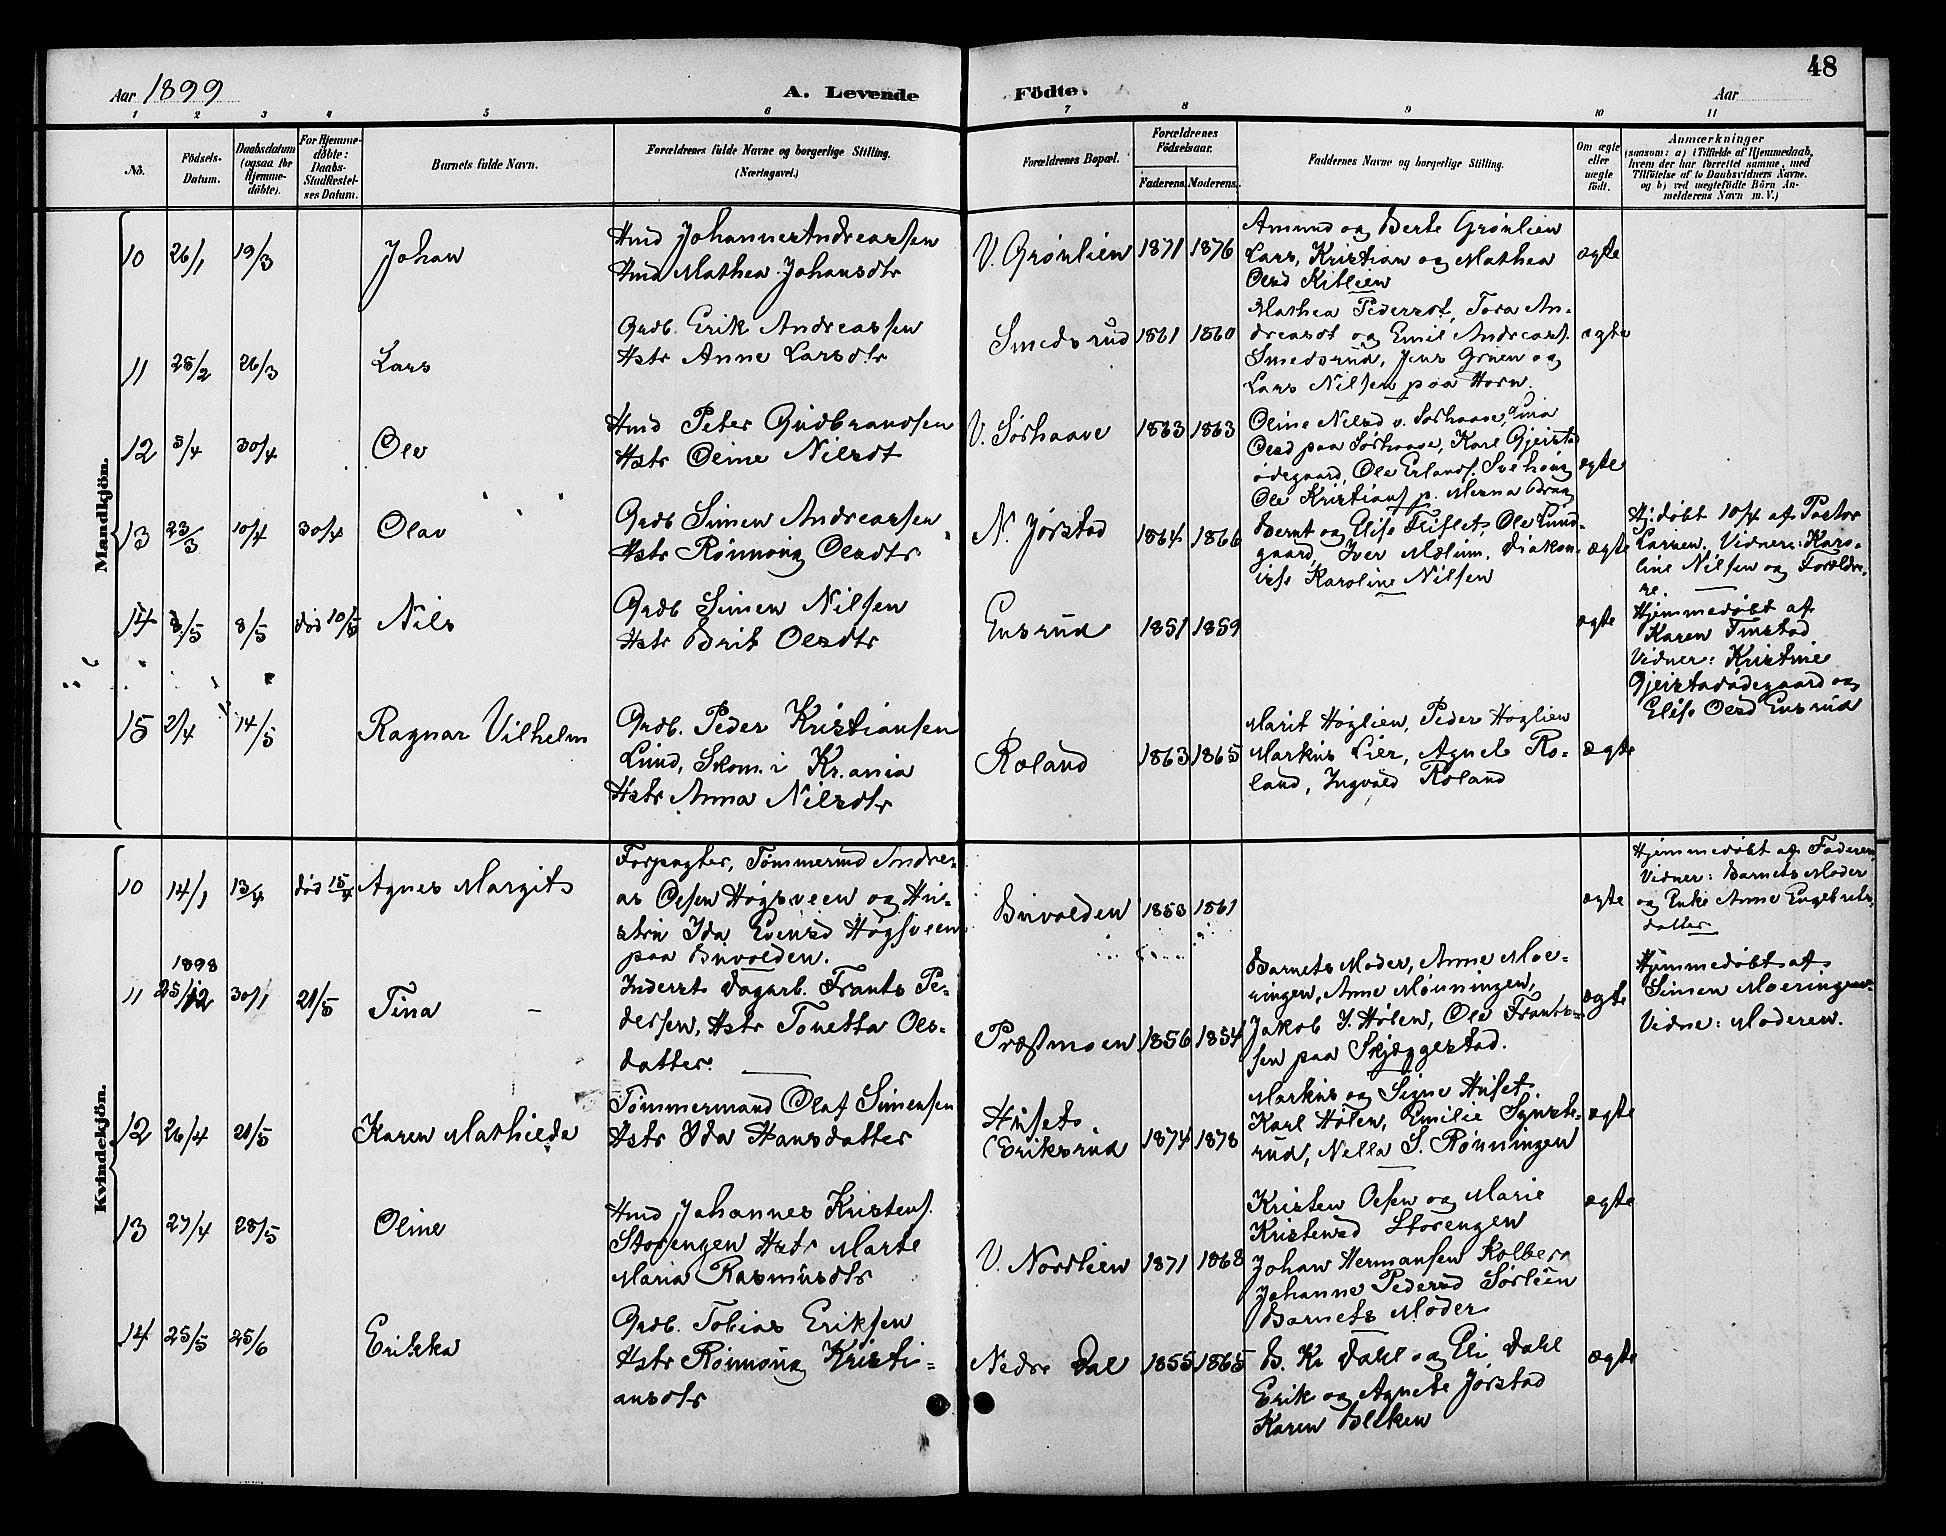 48
Aar 1899
A. Levende
Födte.
Aar
1 2 3 4 5 6 7 8 9 10 11
No.
Födsels-Datum.
Daabsdatum (ogsaa for Hjemme-döbte).
For Hjemme-döbte: Daabs-Stadfæstel-ses Datum.
Barnets fulde Navn.
Forældrenes fulde Navne og borgerlige Stilling. (Næringsvei.)
Forældrenes Bopæl.
Forældrenes Födselsaar.
Faderens. Moderens.
Faddernes Navne og borgerlige Stilling.
Om ægte eller uægte födt.
Anmærkninger
(saasom: a) i Tilfælde af Hjemmedaab,
hvem der har forrettet samme, med
Tilföielse af to Daabsvidners Navne.
og b) ved uægtefödte Börn An-
melderens Navn m.V.)
Mandkjön.
10 26/1 19/3 Johan
Hmd Johannes Andreassen
Hmd Mathea Johansdtr
V. Grønlien 1871 1876
Amund og Berte Grønlien
Lars, Kristian og Mathea
Olsd Kitlien
ægte
11 25/2 26/3 Lars
Grdb. Erik Andreassen
Hstr Anne Larsdtr
Smedsrud 1861 1860
Mathea Pedersdt, Tora An-
dreasdt og Emil Andreass.
Smedsrud, Jens Gruen og
Lars Nilsen paa Horn.
ægte
12 5/4 30/4 Ole
Hmd Peter Gudbrandsen
Hstr Oline Nilsdt
V. Sørhaave 1863 1863
Oline Nilsd v. Sørhaave, Lina
Olsd paa Sørhaave, Karl Gjeistad
ødegaard, Ole Erlands. Svehaug
Ole Kristians p.
ægte
13 23/3 10/4 30/4 Olav
Grdb Simen Andreassen
Hstr Rønnoug Olsdtr
N. Jørstad 1864 1866
Bernt og Elise Fliflet, Ole Lund-
gaard, Iver Mælum, Diakon-
isse Karoline Nilsen
ægte
Hjdøbt 10/4 af Pastor
Larsen. Vidner: Karo-
line Nilsen og Forældre-
ne.
14 3/5 8/5 død 10/5 Nils
Grdb Simen Nilsen
Hstr Brit Olsdtr
Ensrud 1851 1859
ægte
Hjemmedøbt af
Karen Finstad
Vidner: Kristine
Gjeistadødegaard og
Elise Olsd Ensrud
15 2/4 14/5 Ragnar Vilhelm
Grdb. Peder Kristiansen
Lund, Skom. i Kr.ania
Hstr Anna Nilsdtr
Roland 1863 1865
Marit Høglien, Peder Høglien
Markus Lier, Agnete Ro-
land, Ingvald Roland
ægte
Kvindekjön.
10 14/1 13/4 død 15/4 Agnes Margit
Forpagter, Tømmermd Andre-
as Olsen Høgsveen og Hu-
stru Ida Evensd Høgsveen
paa Buvolden.
Buvolden 1853 1861
ægte
Hjemmedøbt af Faderen
Vidner: Barnets Moder
og Enke Anne Engebrets-
datter
11 1898 25/12 30/1 21/5 Tina
Inderst Dagarb. Frants Pe-
dersen, Hstr Tonetta Ols-
datter.
Præstmoen 1856 1854
Barnets Moder, Anne Moe-
ringen, Anne Mønningen,
Jakob J. Holen, Ole Frants-
sen paa Skjæggerstad.
ægte
Hjemmedøbt af
Simen Moeringen
Vidne: Moderen.
12 26/4 21/5 Karen Mathilde
Tømmermand Olaf Simensen
Hstr Ida Hansdatter
Huset
Eriksrud 1874 1878
Markus og Signe Huset.
Karl Holen, Emilie Synste-
rud, Nella S. Rønningen
ægte
13 27/4 28/5 Oline
Hmd Johannes Kristens.
Storengen Hstr Marte
Maria Rasmusdtr
V. Nordlien 1871 1868
Kristen Olsen og Marie
Kristensd Storengen
Johan Hermansen Kolberg
Johanne Pedersd Sørlien
Barnets Moder
ægte
14 25/5 25/6 Erikka
Grdb. Tobias Eriksen
Hstr Rønnoug Kristi-
ansdtr
Nedre Dal 1855 1865
B. Kr Dahl og Eli Dahl
Erik og Agnete Jørstad
Karen Bleken
ægte